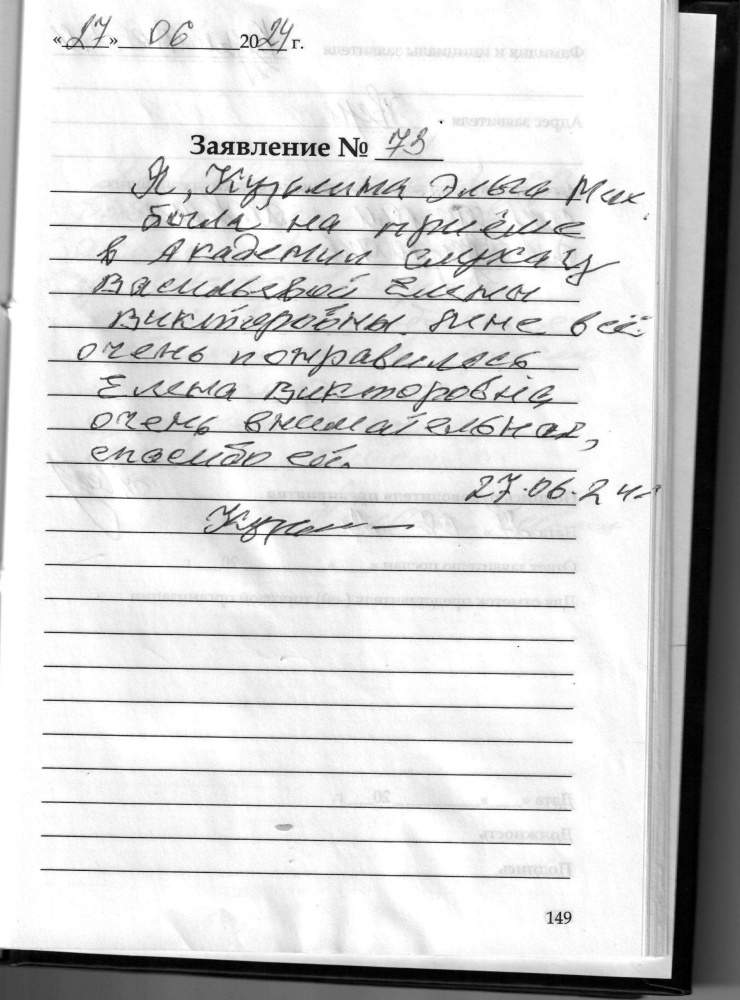 «27» 06 2024 г.
Заявление № 73
Я, Кузьмина Эльга Мих.
была на приёме
в Академии слуха у
Васильевой Елены
Викторовны. Мне всё
очень понравилось
Елена Викторовна
очень внимательная,
спасибо ей.
27.06.24г
149